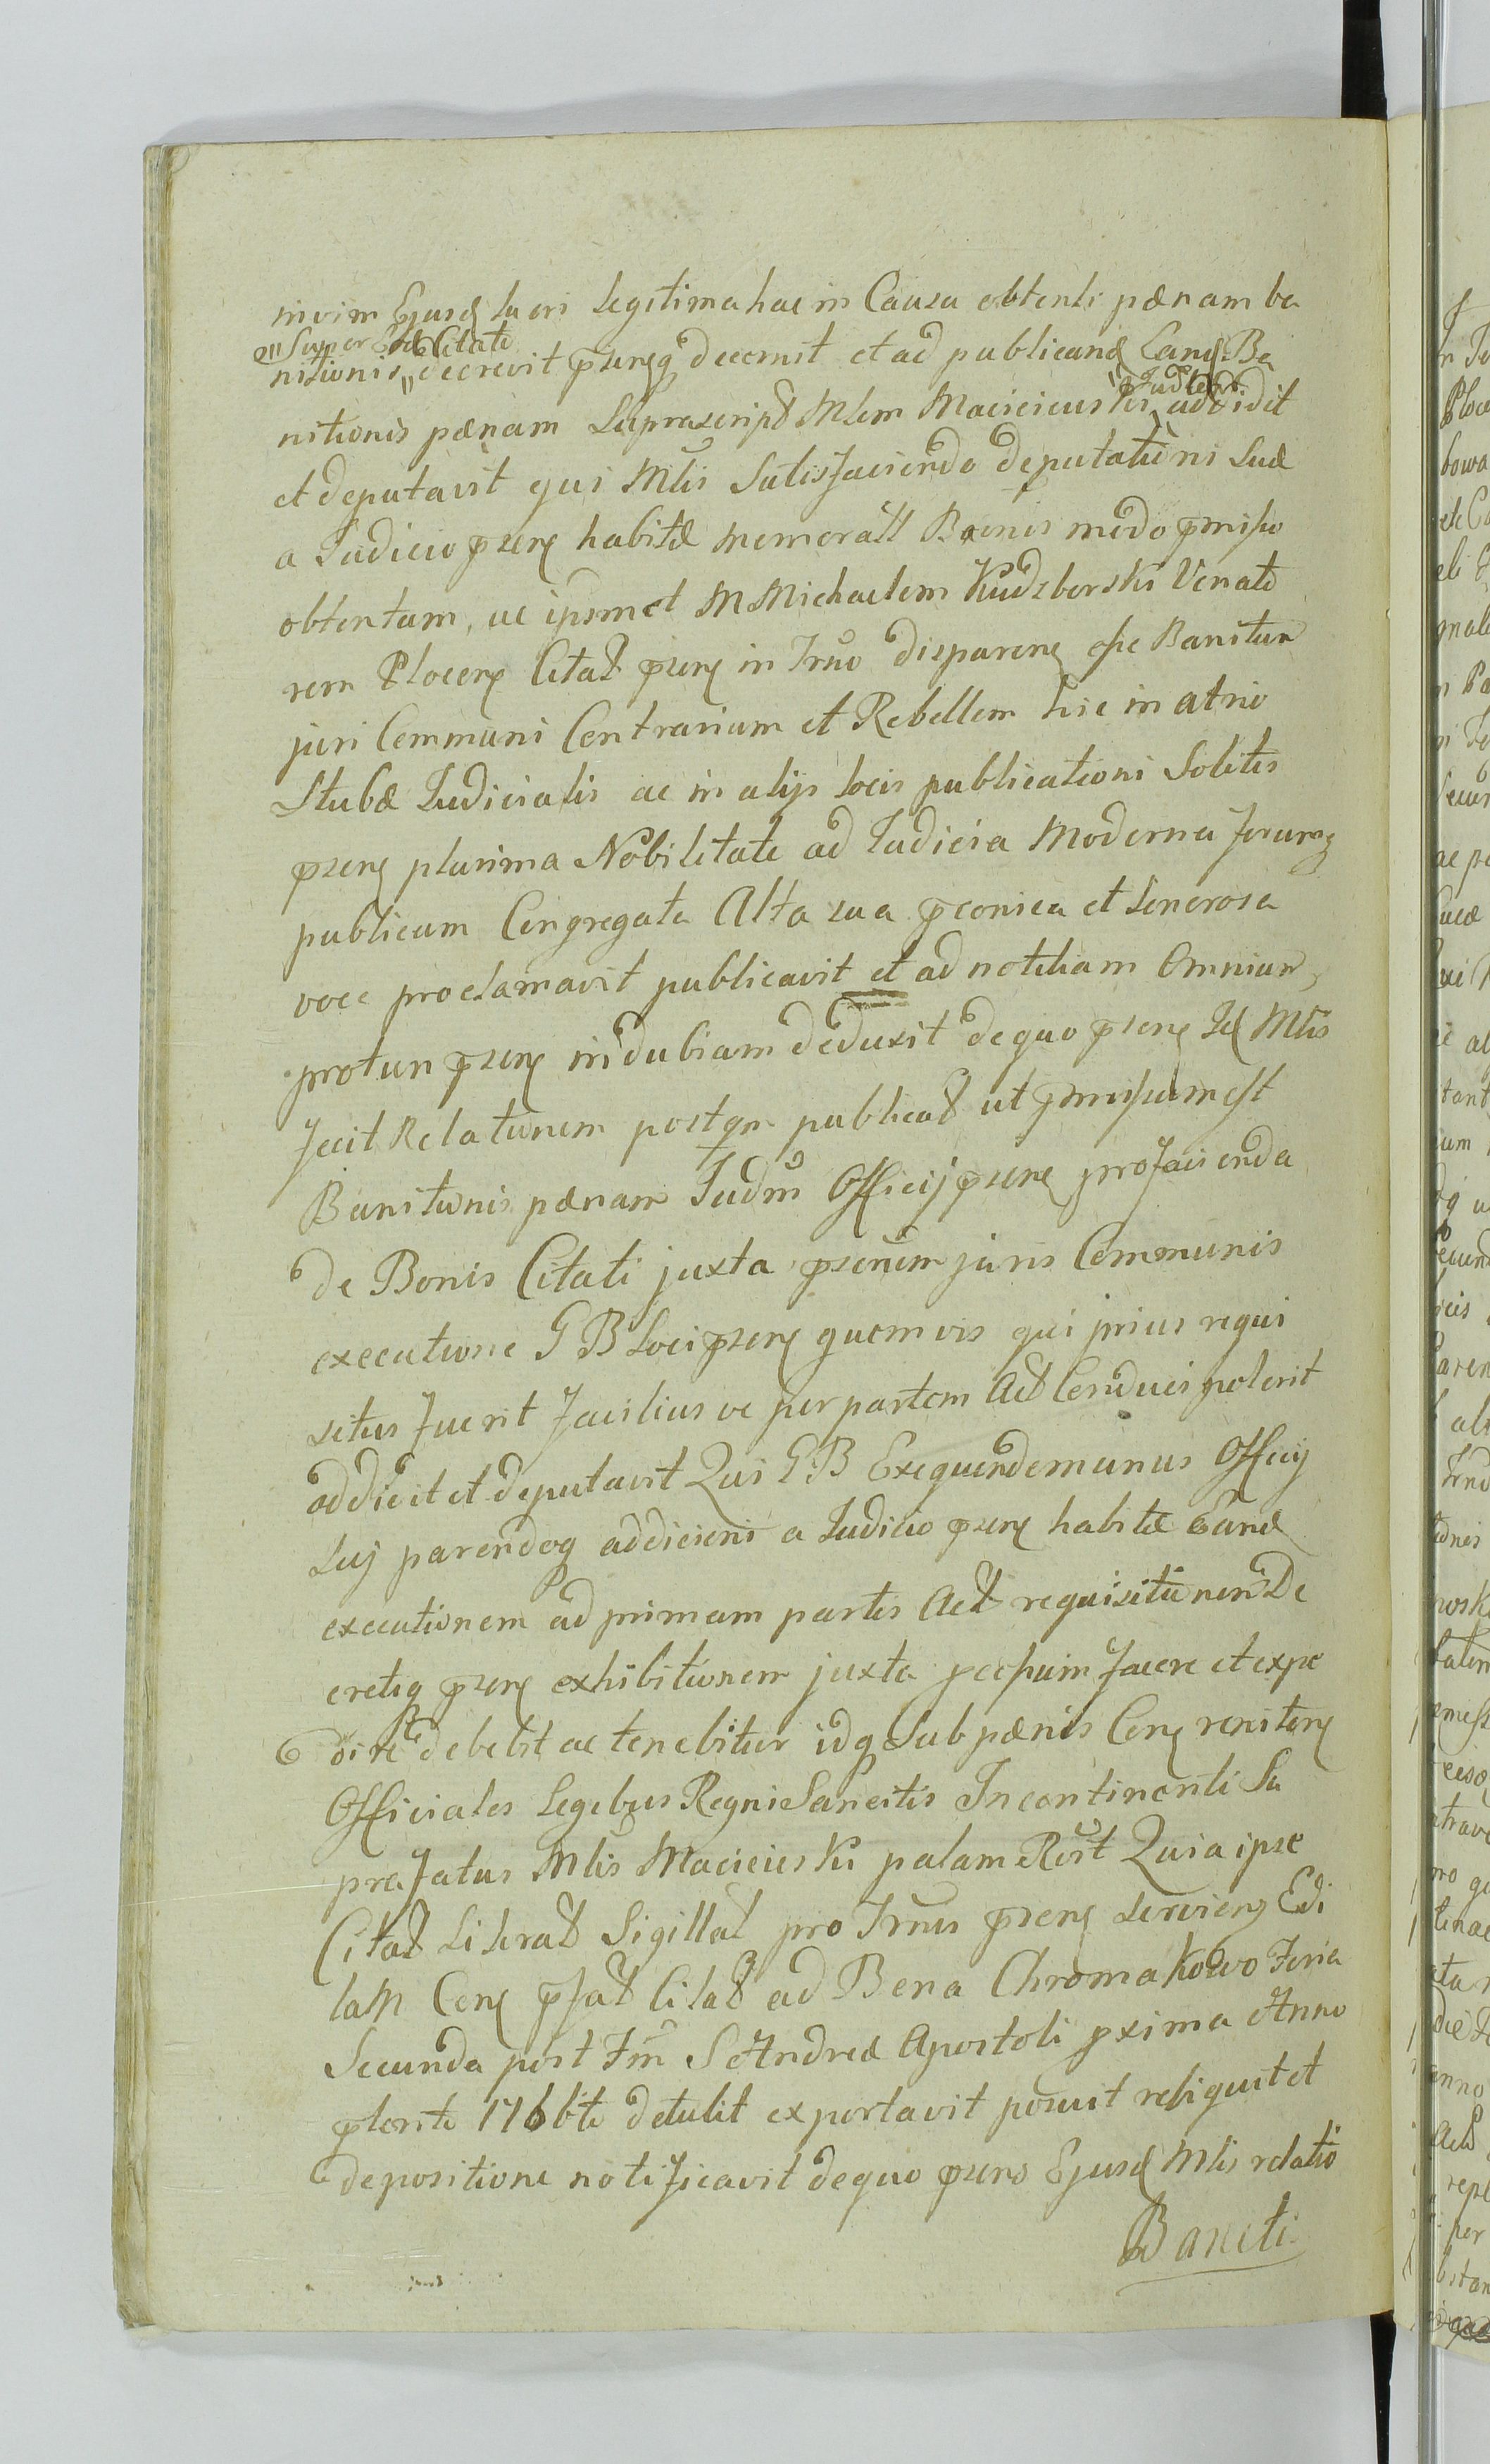 nivim Ejusd lucri legitima hac in Causa obtenti pænam ba
" Super Citato
nitionis " decrevit prnsq decernit et ad publicand Eand Ba
nitionis pænam Suprascript Mlem Macieiewski " Judlem addidit
et deputavit qui Mlis Satisfaciendo deputationi Suæ
a Judicio prns habitæ memoratt Bonis modo pmisso
obtentam, ac ipsmet M Michaelem Kudzborski Venato
rem Plocens Citat prns in Trno disparens esse Banitum
juri Communi Contrarium et Rebellem hic in atrio
Stubæ Judicialis ac in alijs locis publicationi Solitis
prns plurima Nobilitate ad Judicia Moderna forumq
publicum Congregata Alta sua pconica et Sonorosa
voce proclamavit publicavit et ad notitiam Omnium,
protun prns indubiam deduxit de quo prns Id Mlis
fecit Relationem postqm publicat ut pmissum est
Banitionis pænam Judm Officij prns pro facienda
de Bonis Citati juxta prsum juris Communis
executione G B Loci prns quemvis qui prius requi
situs fuerit facilius ve per partem Act Conduci poterit
addicit et deputavit Qui G B Exequendo munus Officij
Suj parendoq addicioni a Judicio prns habitæ Eand
executionem ad primam partis Act requisitionem De
cretiq prns exhibitionem juxta pcessum facere et expe
dire debebit ac tenebitur idq Sub pænis Cons renitens
Officiales Legibus Regni Sancitis Incontinenti Su
prafatus Mlis Macieieski palam Rlt Quia ipse
Citat Literat Sigillat pro Trnis prns Serviens Edi
lam Cons pfat Citat ad Bona Chromakowo Feria
Secunda post Fm S Andreæ Apostoli pxima Anno
pterito 176 bte detulit exportavit posuit reliquit et
depositione notificavit de quo prns Ejusd Mlis relatio
Baniti